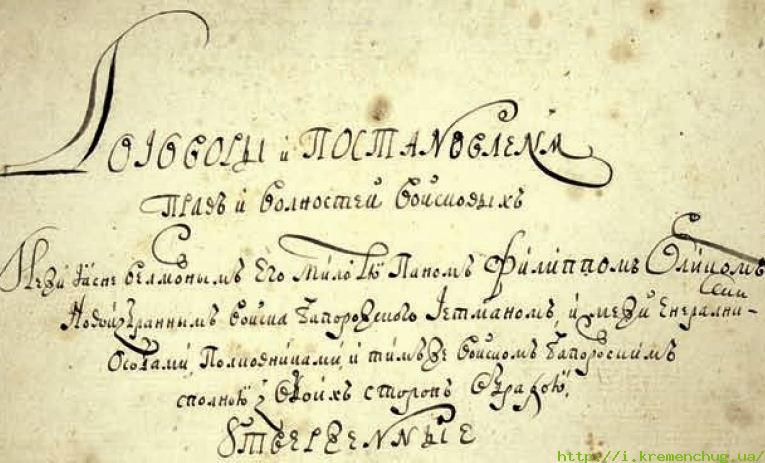 Договоры и Постановленя
Правъ и волностей войсковыхъ
Межи Ясне велможнымъ Его Милостю Паномъ Филиппомъ Орликомъ
Новоизбраннымъ войска Запорожского Гетманомъ, и межи Енерални-
Особами, Полковниками, и тимъже войскомъ Запорожскимъ
сполною з обоихъ сторонъ обрадою,
Утверженные
http://i.kremenchug.ua/